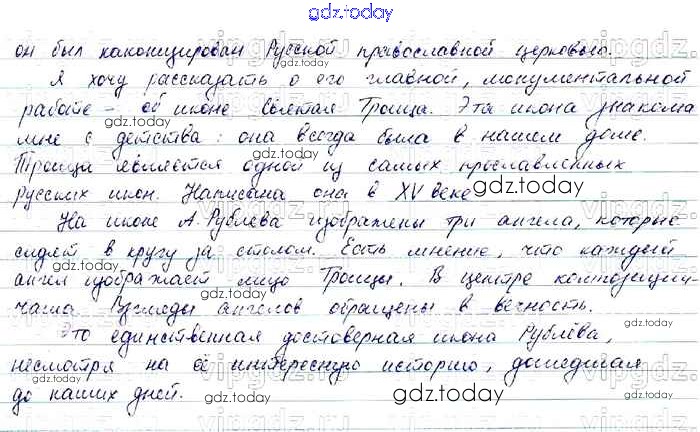 gdz.today
он был канонизирован Русской православной церковью.
gdz.today gdz.today
Я хочу рассказать о его главной, монументальной
работе - об иконе Святая Троица. Эта икона знакома
gdz.today gdz.today
мне с детства: она всегда была в нашем доме.
Троица является одной из самых прославленных
русских икон. Написана она в XV веке
gdz.today gdz.today
На иконе А. Рублёва изображены три ангела, которые
сидят в кругу за столом. Есть мнение, что каждый
gdz.today gdz.today
ангел изображает лицо Троицы. В центре композиции-
gdz.today
чаша. Взгляды ангелов обращены в вечность.
gdz.today
Это единственная достоверная икона Рублёва,
несмотря на её интересную историю, дошедшая
gdz.today gdz.today
до наших дней.
gdz.today